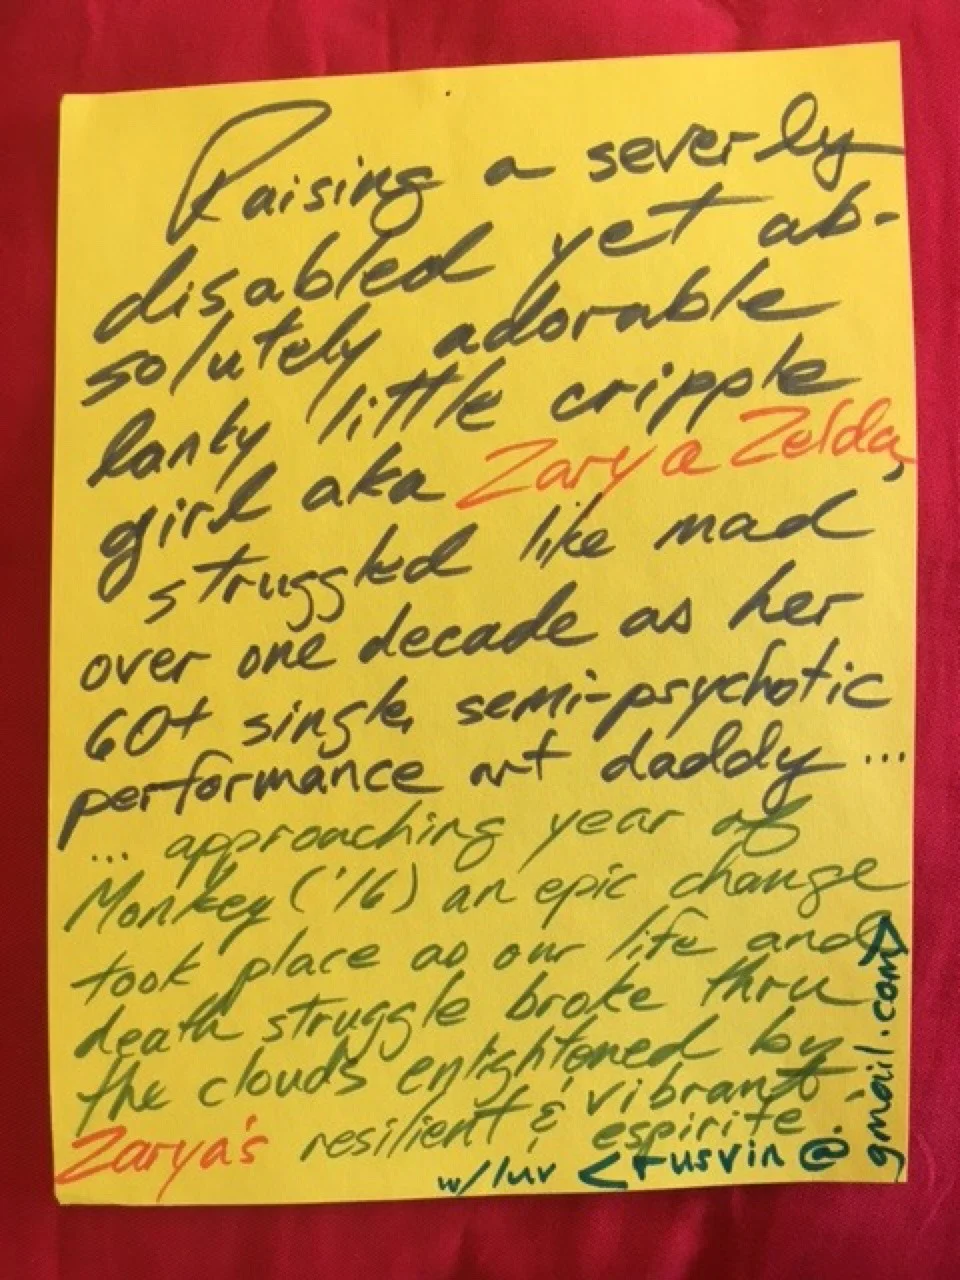 Raising a severly
disabled yet ab-
solutely adorable
lanky little cripple
girl aka Zarya Zelda,
struggled like mad
over one decade as her
60+ single, semi-psychotic
performance art daddy...
... approaching year of
Monkey ('16) an epic change
took place as our life and
death struggle broke thru
the clouds enlightened by
Zarya's resilient & vibrant
espirite.
w/luv <tusvin@
gmail.com>